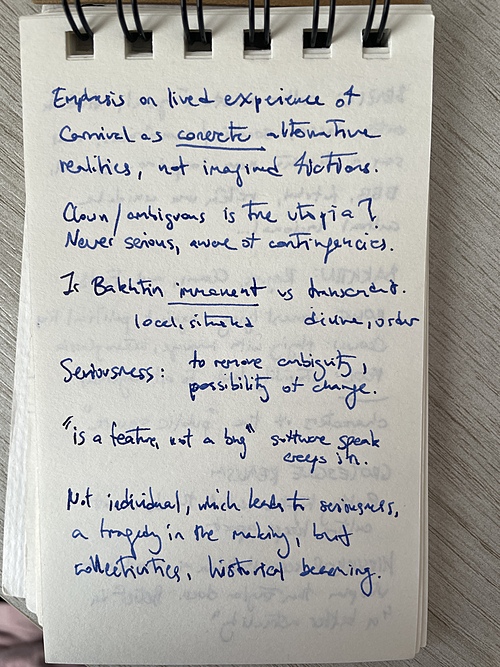 Emphasis on lived experience of
Carnival as concrete alternative
realities, not imagined fictions.
Clown/ambiguous is the utopia?
Never serious, aware of contingencies.
Is Bakhtin immanent vs transcendent.
local, situated divine, order
Seriousness: to remove ambiguity,
possibility of change.
"is a feature, not a bug" software speak
creeps in.
Not individual, which leads to seriousness,
a tragedy in the making, but
collectivities, historical becoming.